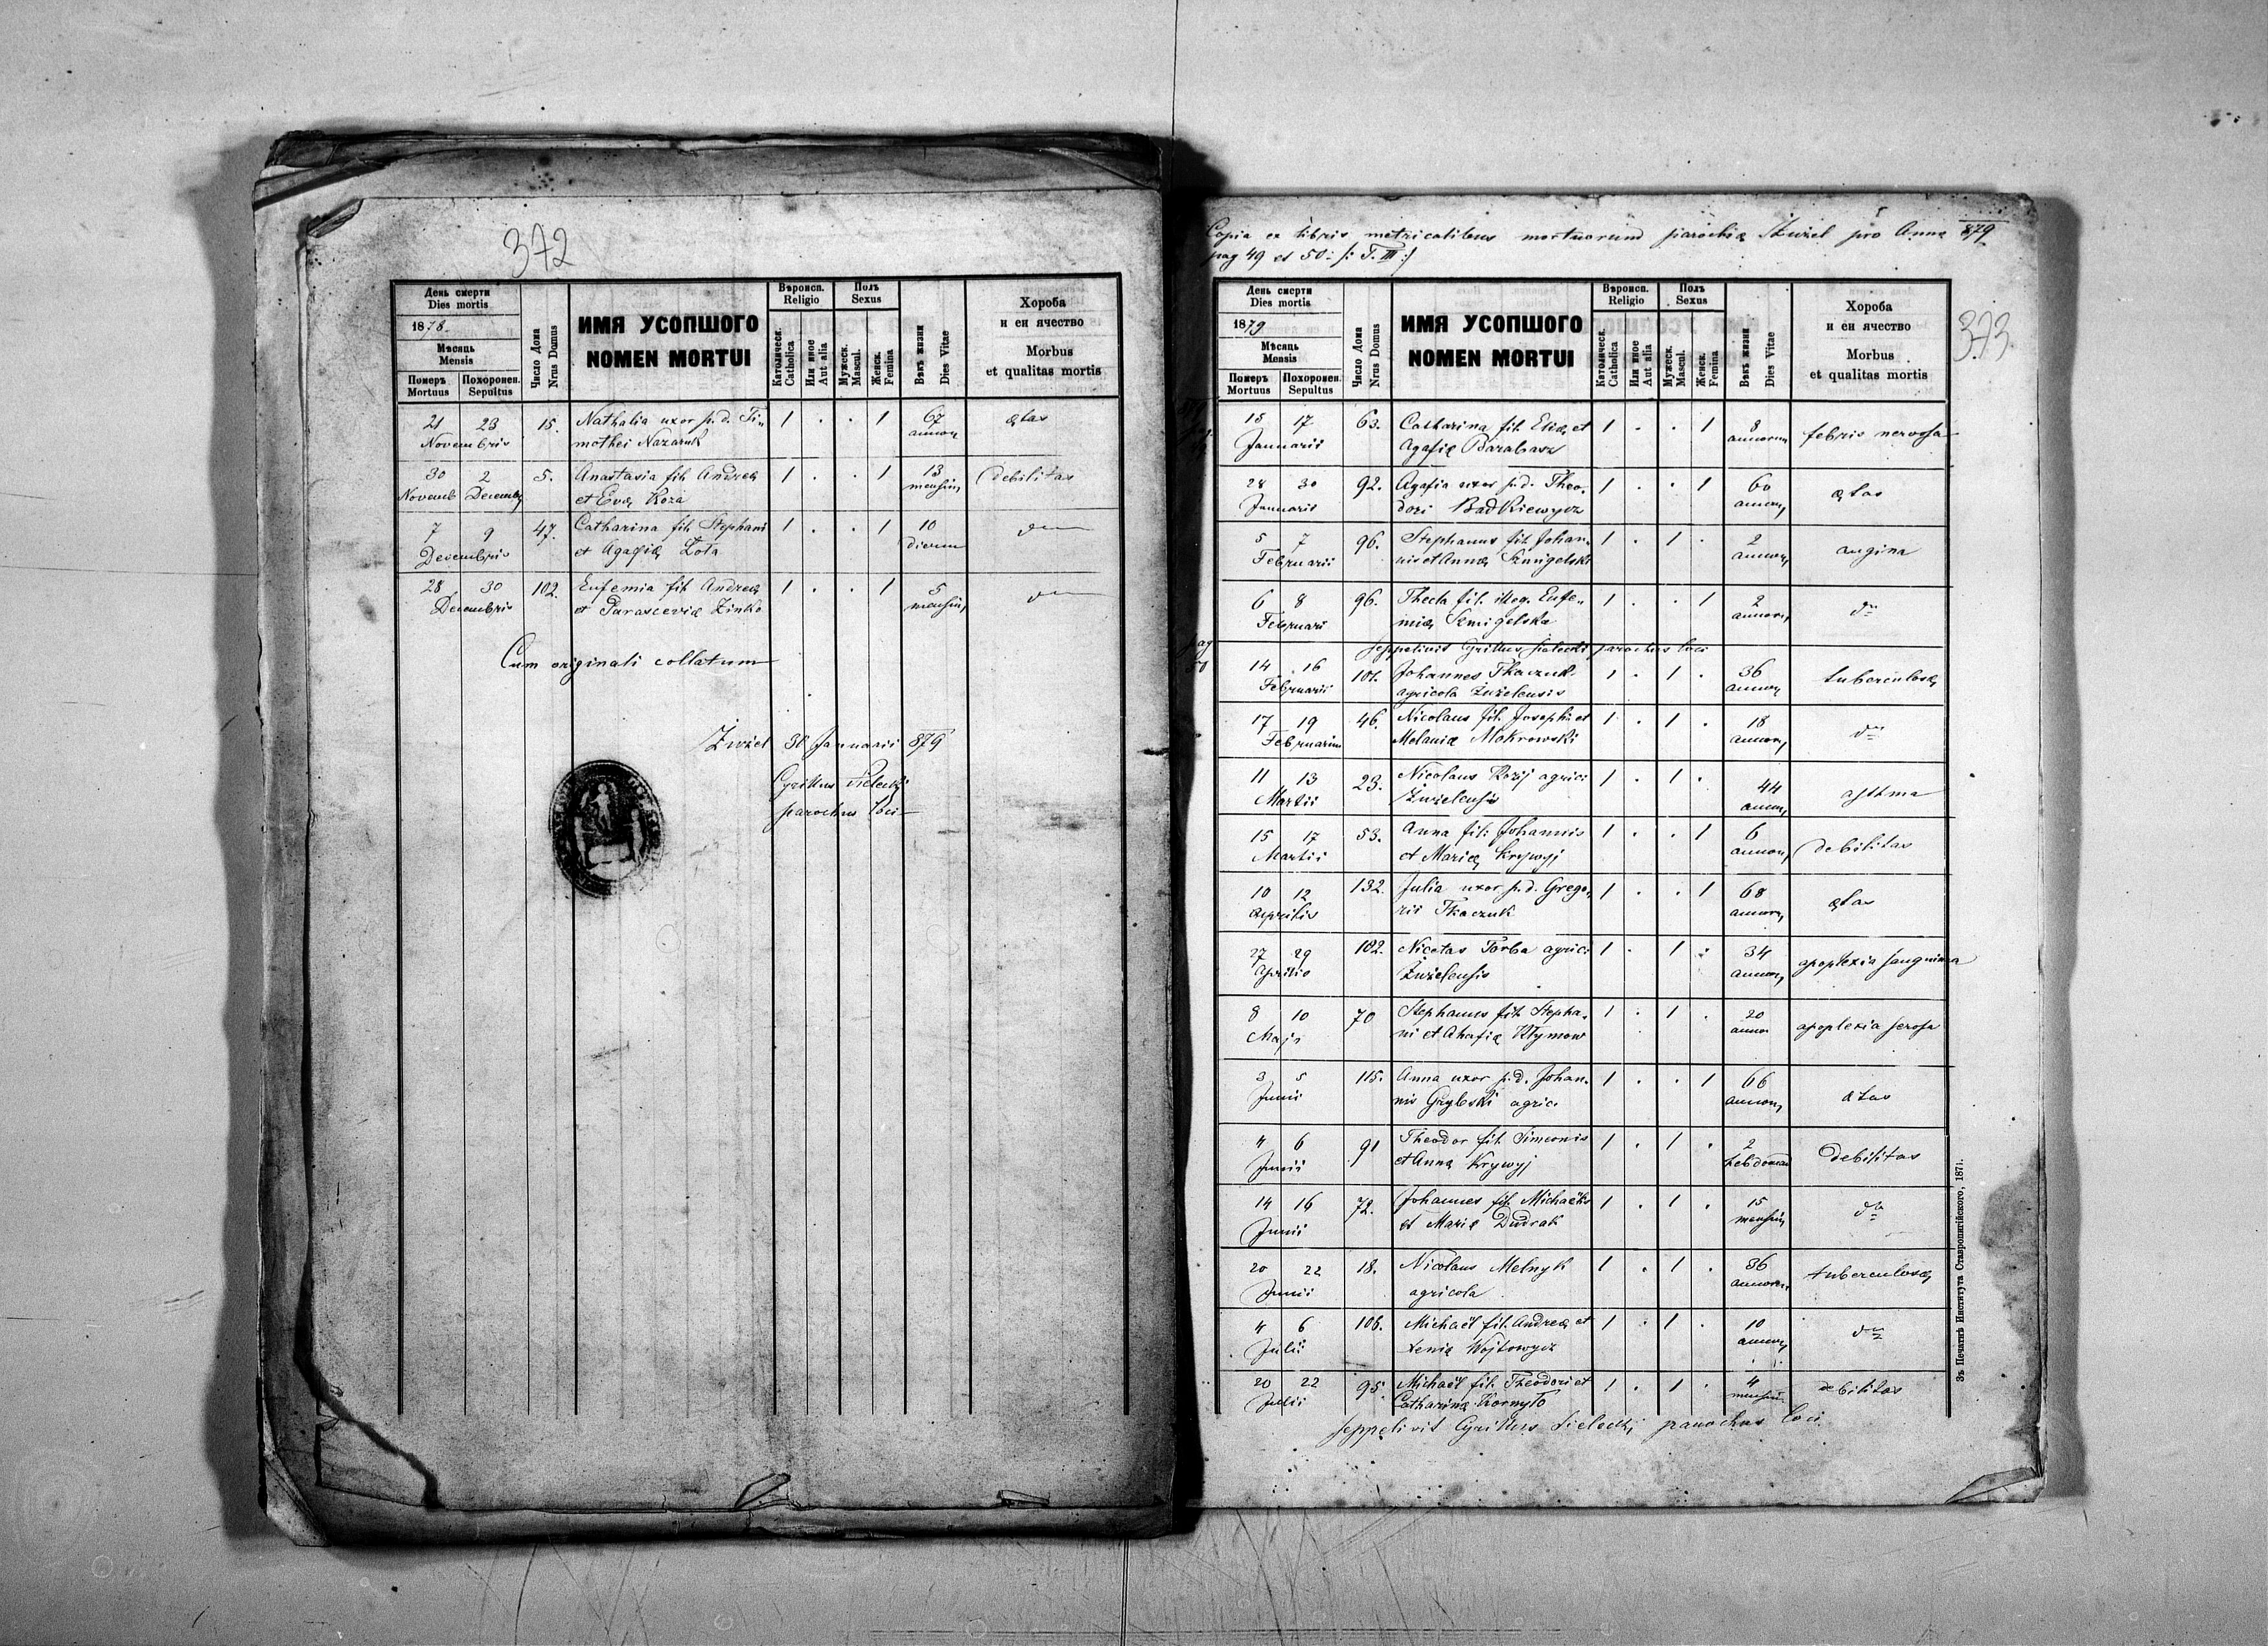 372
День смерти
Dies mortis
1878.
Мѣсяць
Mensis
Померъ
Mortuus
Похоронен.
Sepultus
Число Дома
Nrus Domus
ИМЯ УСОПШОГО
NOMEN MORTUI
Вѣроисп.
Religio
Католическ.
Catholica
Или иное
Aut alia
Полъ
Sexus
Мужеск.
Mascul.
Женск.
Femina
Вѣкъ жизни
Dies Vitae
Хороба
и еи ячество
Morbus
et qualitas mortis
21 23 15. Nathalia uxor p. d. Ti- 1 . . 1 67 ętas
Novembris mothei Nazaruk annor
30 2 5. Anastasia fil. Andreę 1 . . 1 13 debilitas
Novemb Decemb et Evę Koza mensium
7 9 47. Catharina fil. Stephani 1 . . 1 10 dto
Decembris et Agafię Zota dierum
28 30 102. Eufemia fil. Andreę 1 . . 1 5 dto
Decembris et Parascevię Zinko mensium
Cum originali collatum
Żużel 31 Januarii 879
Cyrillus Sielecki
parochus loci
Copia ex libris metricalibus mortuorum parochię Żużel pro Anno 879
pag 49 et 50 /: T. III :/
373
День смерти
Dies mortis
1879
Мѣсяць
Mensis
Померъ
Mortuus
Похоронен.
Sepultus
Число Дома
Nrus Domus
ИМЯ УСОПШОГО
NOMEN MORTUI
Вѣроисп.
Religio
Католическ.
Catholica
Или иное
Aut alia
Полъ
Sexus
Мужеск.
Mascul.
Женск.
Femina
Вѣкъ жизни
Dies Vitae
Хороба
и еи ячество
Morbus
et qualitas mortis
15 17 63. Catharina fil. Elię et 1 . . 1 8 febris nervosa
Januarii Agafię Barabasz annorum
28 30 92. Agafia uxor p. d. Theo- 1 . . 1 60 ętas
Januarii dori Badkiewycz annor
5 7 96. Stephanus fil. Johan- 1 . 1 . 2 angina
Februarii nis et Annę Szmigelski annor
6 8 96. Thecla fil. illeg. Eufe- 1 . . 1 2 dto
Februarii mię Szmigelska annor
seppelivit Cyrillus Sielecki parochus loci
pag
50
14 16 101. Johannes Tkaczuk 1 . 1 . 36 tuberculosę
Februarii agricola Żużelensis annor
17 19 46. Nicolaus fil. Josephi et 1 . 1 . 18 dto
Februarii Melanię Mokrowski annor
11 13 23. Nicolaus Kozij agric: 1 . 1 . 44 asthma
Martii Żużelensis annor
15 17 53. Anna fil. Johannis 1 . . 1 6 debilitas
Martii et Marię Krywyj annor
10 12 132. Julia uxor p. d. Grego- 1 . . 1 68 ętas
Aprilis rii Tkaczuk annor
27 29 102. Nicetas Torba agric: 1 . 1 . 34 apoplexia sanguinea
Aprilis Żużelensis annor
8 10 70 Stephanus fil. Stepha- 1 . 1 . 20 apoplexia serosa
Maji ni et Ahafię Klymow annor
3 5 115. Anna uxor p. d. Johan- 1 . . 1 66 ętas
Junii nis Grybski agric. annor
4 6 91 Theodor fil. Simeonis 1 . 1 . 2 debilitas
Junii et Annę Krywyj hebdomad
14 16 72. Johannes fil. Michaëlis 1 . 1 . 15 dto
Junii et Marię Dudrak mensium
20 22 18. Nicolaus Melnyk 1 . 1 . 36 tuberculosę
Junii agricola annor
4 6 106. Michaël fil. Andreę et 1 . 1 . 10 dto
Julii Xenię Wojtowycz annor
20 22 95. Michaël fil. Theodori et 1 . 1 . 4 debilitas
Julii Catharinę Kornyło mensium
seppelivit Cyrillus Sielecki parochus loci
Зъ Печатнѣ Института Ставропигійского, 1871.